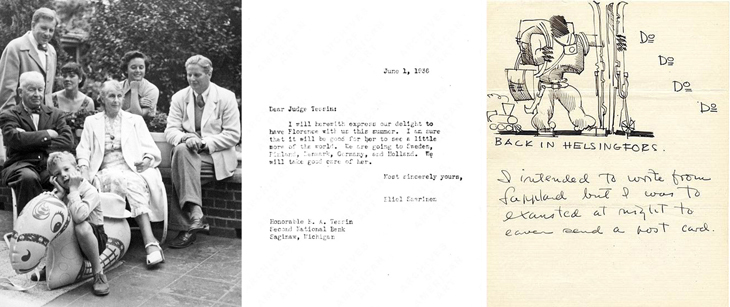 June 1, 1936
Dear Judge Tesrin:
I will herewith express our delight to
have Florence with us this summer. I am sure
that it will be good for her to see a little
more of the world. We are going to Sweden,
Finland, Denmark, Germany, and Holland. We
will take good care of her.
Most sincerely yours,
Eliel Saarinen
Honorable E. A. Tesrin
Second National Bank
Saginaw, Michigan
Do
Do
Do
Do
BACK IN HELSINGFORS.
I intended to write from
Lappland but I was to
exausted at night to
eaven send a post card.